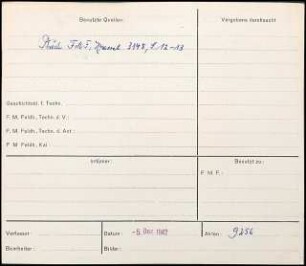 Benutzte Quellen:
Vergebens durchsucht
3148, S. 12-13
Geschichtsbl. f. Techn.
F. M. Feldh., Techn. d. V.:
F. M. Feldh., Techn. d. Ant.:
F. M. Feldh., Kal.:
Benutzt zu:
F. M. F.:
Verfasser:
Datum: -5. Dez. 1912
Akten: 9256
Bearbeiter:
Bilder: